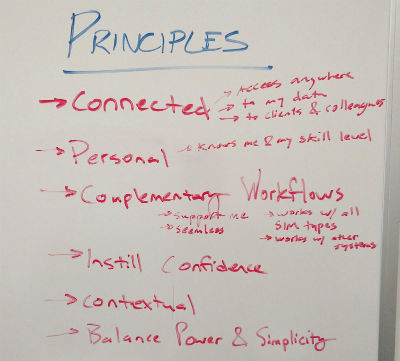 PRINCIPLES
→ Connected
→ Access anywhere
→ to my data
→ to clients & colleagues
→ Personal
→ knows me & my skill level
→ Complementary Workflows
→ Support me
→ Seamless
→ works w/ all
SIM types
→ works w/ other
systems
→ Instill Confidence
→ Contextual
→ Balance Power & Simplicity